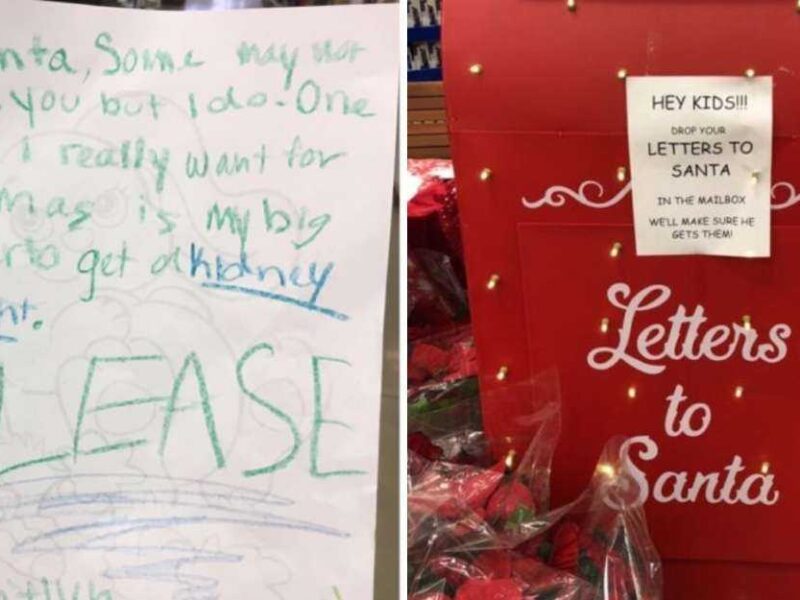 nta, Some may not
you but I do. One
I really want for
mas is my big
to get a kidney
nt.
LEASE
HEY KIDS!!!
DROP YOUR
LETTERS TO
SANTA
IN THE MAILBOX
WE'LL MAKE SURE HE
GETS THEM!
Letters
to
Santa